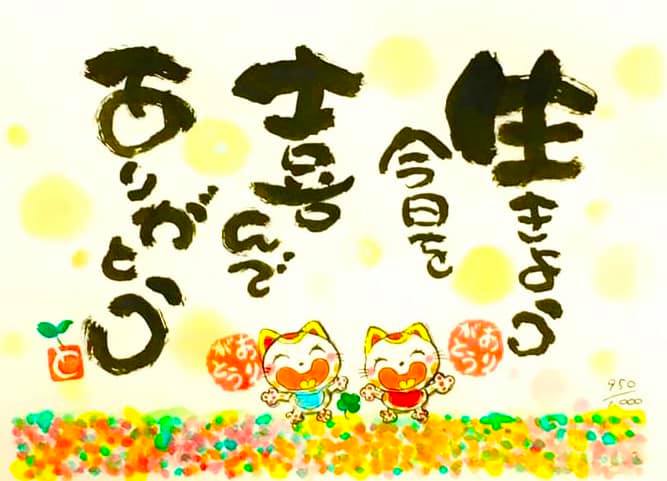 生きよう
今日を
喜んで
ありがとう
ありがとう
ありがとう
と
950
1,000